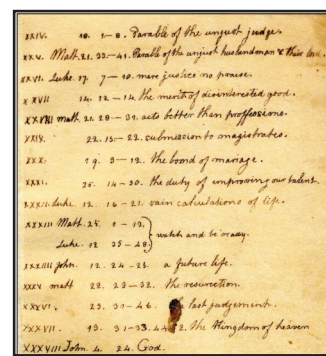 XXIV. 18. 1–8. Parable of the unjust judge.
XXV. Math. 21. 33–41. Parable of the unjust husbandman & their lord.
XXVI. Luke. 17. 7–10. mere justice no praise.
XXVII 14. 12–14. the merit of disinterested good.
XXVIII math 21. 28–31. acts better than professions.
XXIX. 22. 15–22. submission to magistrates.
XXX. 19. 3–12. the bond of mariage.
XXXI. 25. 14–30. the duty of improving our talent.
XXXII. Luke. 12. 16–21. vain calculations of life.
XXXIII Matt. 25. 1–13.
Luke. 12 35–48. } watch and be ready.
XXXIIII John. 12. 24–25. a future life.
XXXV matt 22. 23–32. the resurrection.
XXXVI. 25. 31–46. last judgement.
XXXVII. 13. 31–33. 44–52. the Kingdom of heaven
XXXVIII John. 4. 24. God.